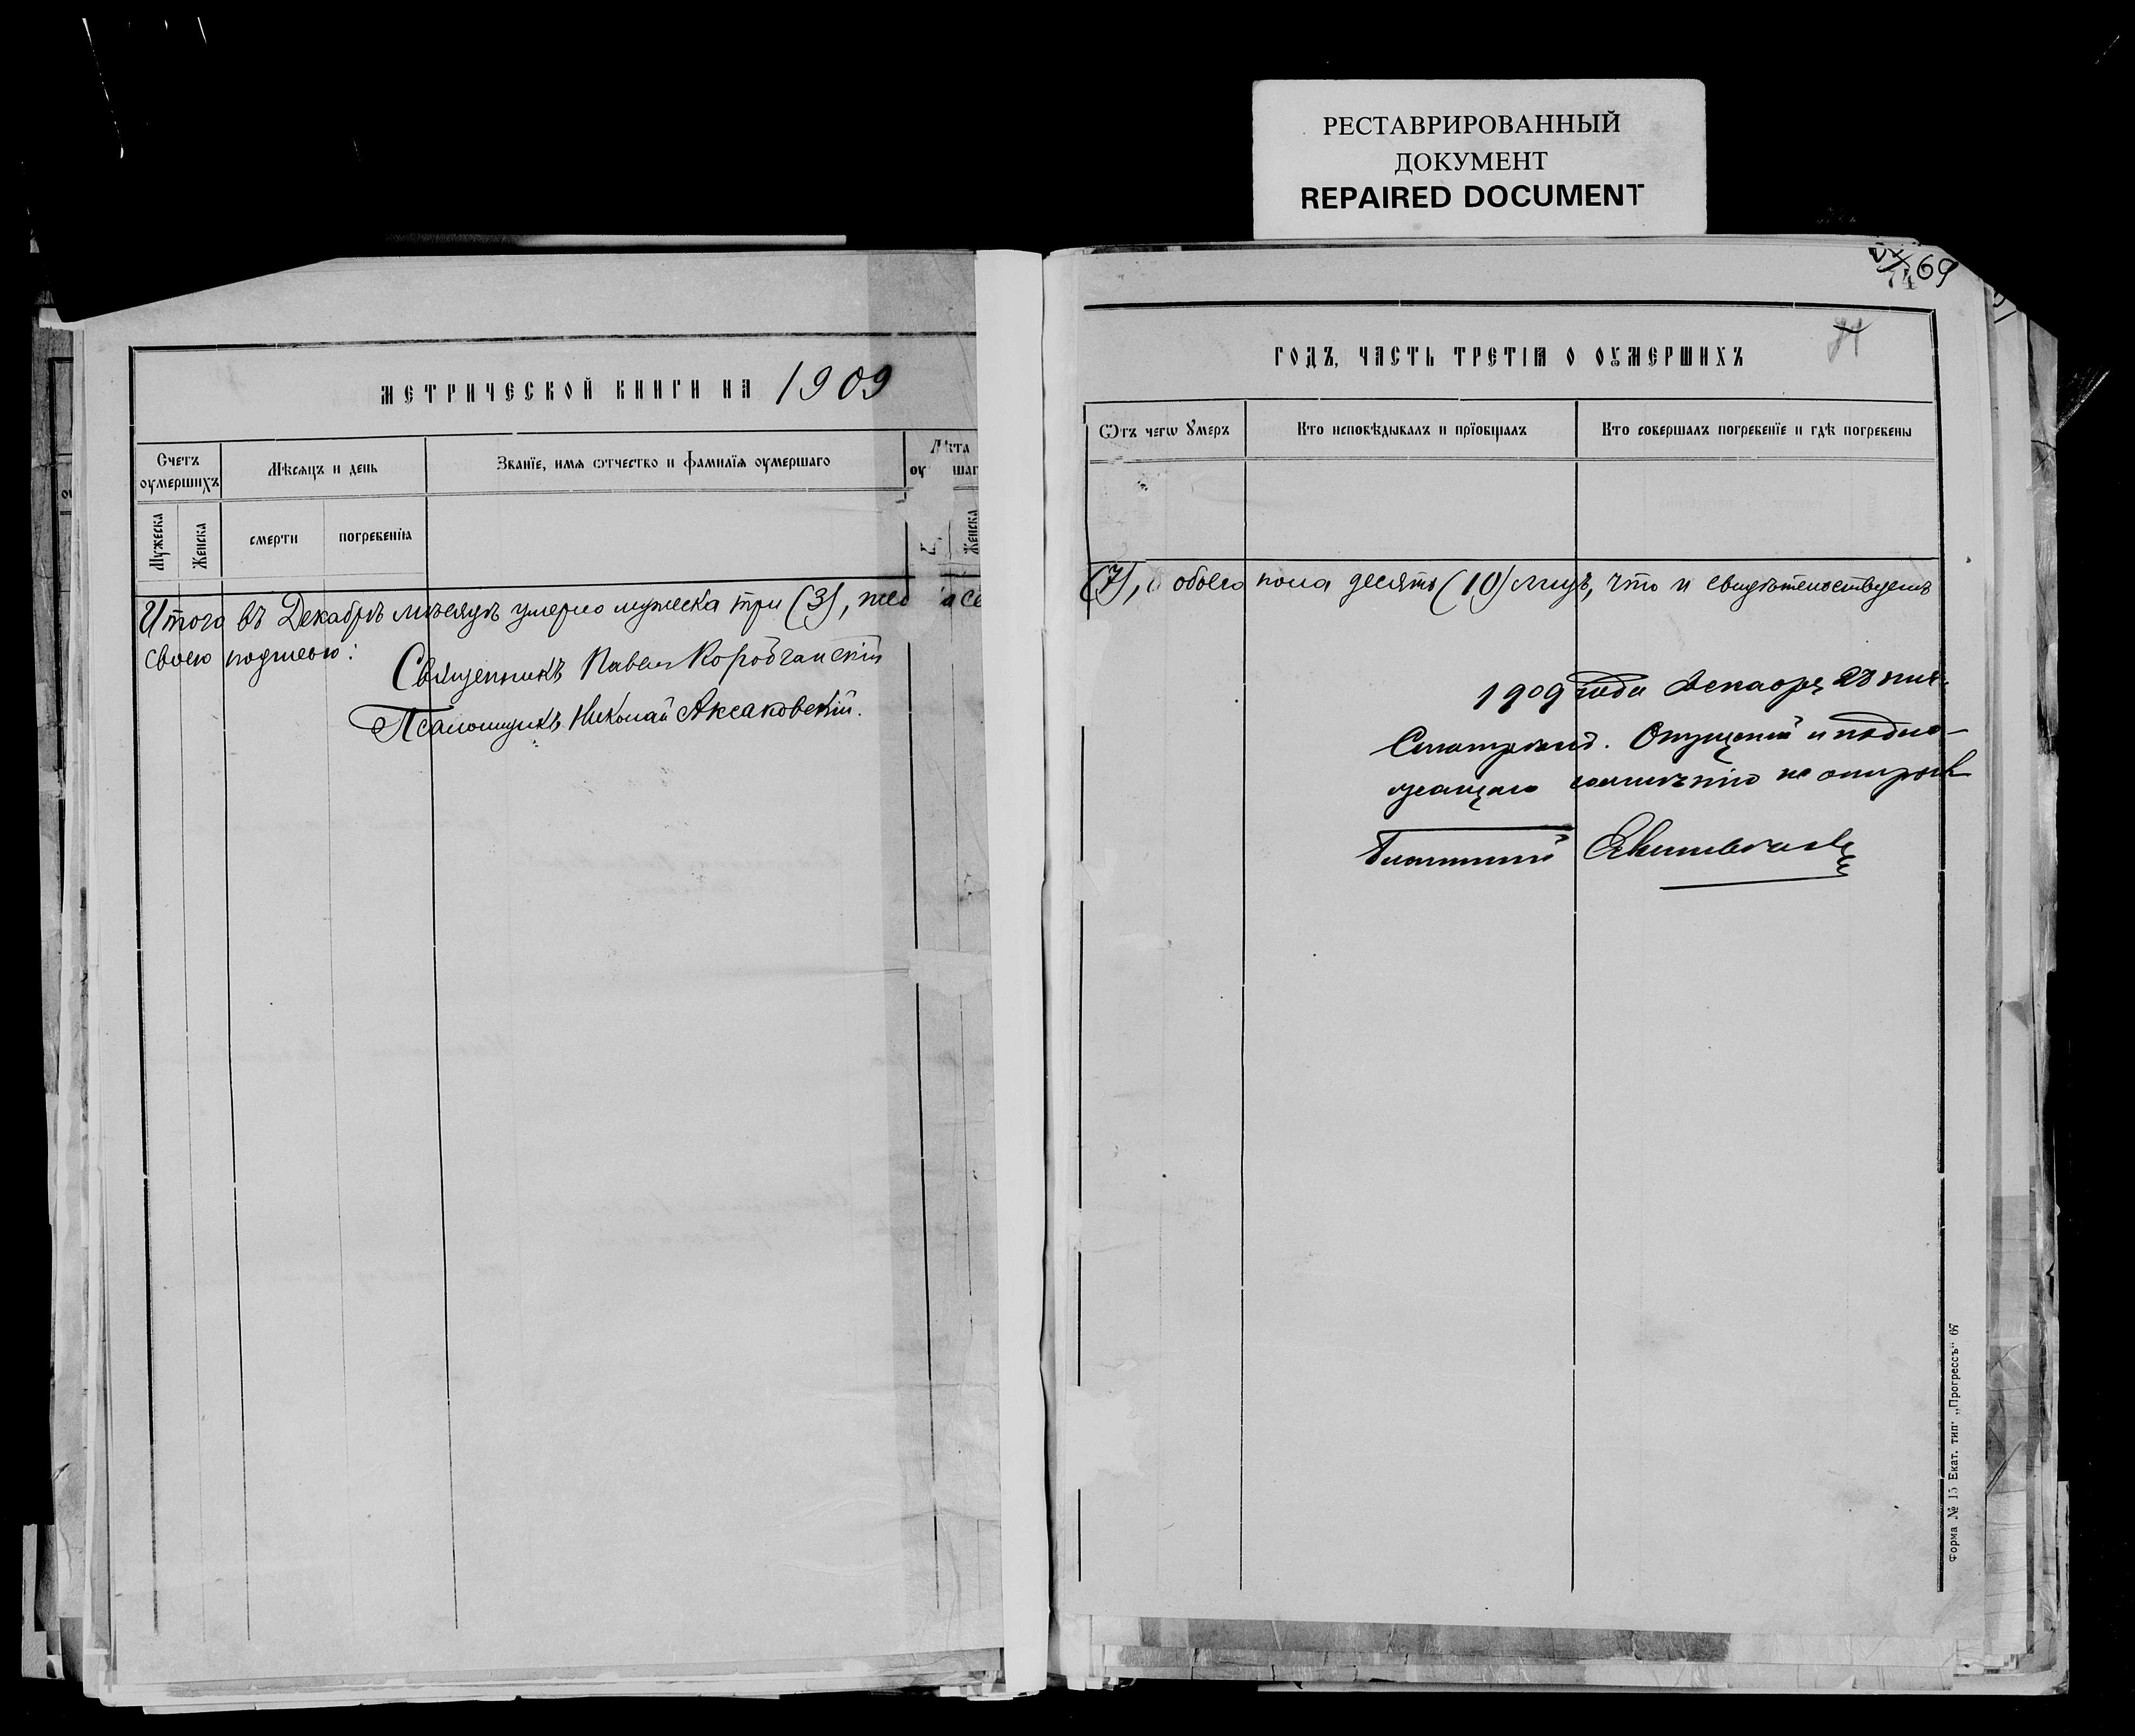 РЕСТАВРИРОВАННЫЙ
ДОКУМЕНТ
REPAIRED DOCUMENT
МЕТРИЧЕСКОЙ КНИГИ НА 1909
Счетъ оумершихъ
Мѣсяцъ и день
Званїе, имѧ ѿтчество и фамилїѧ оумершаго
Лѣта
Мужеска
Женска
смерти
погребенїѧ
Женска
Итого въ Декабрѣ мѣсяцѣ умерло мужеска три (3),
своею подписью:
Священникъ Павелъ Коробчанскій
Псаломщикъ Николай Аксаковскій.
69
74
ГОДЪ, ЧАСТЬ ТРЕТІѦ О ОУМЕРШИХЪ
Ѿтъ чегѡ Ꙋмеръ
Кто исповѣдывалъ и прїобщалъ
Кто совершалъ погребенїе и гдѣ погребены
(7), обоего пола десять (10) лицъ, что и свидѣтельствуемъ
1909 года Декабря 28
и подле-
жащаго
Благочинный
Форма № 15 Екат. тип. „Прогрессъ“ 67